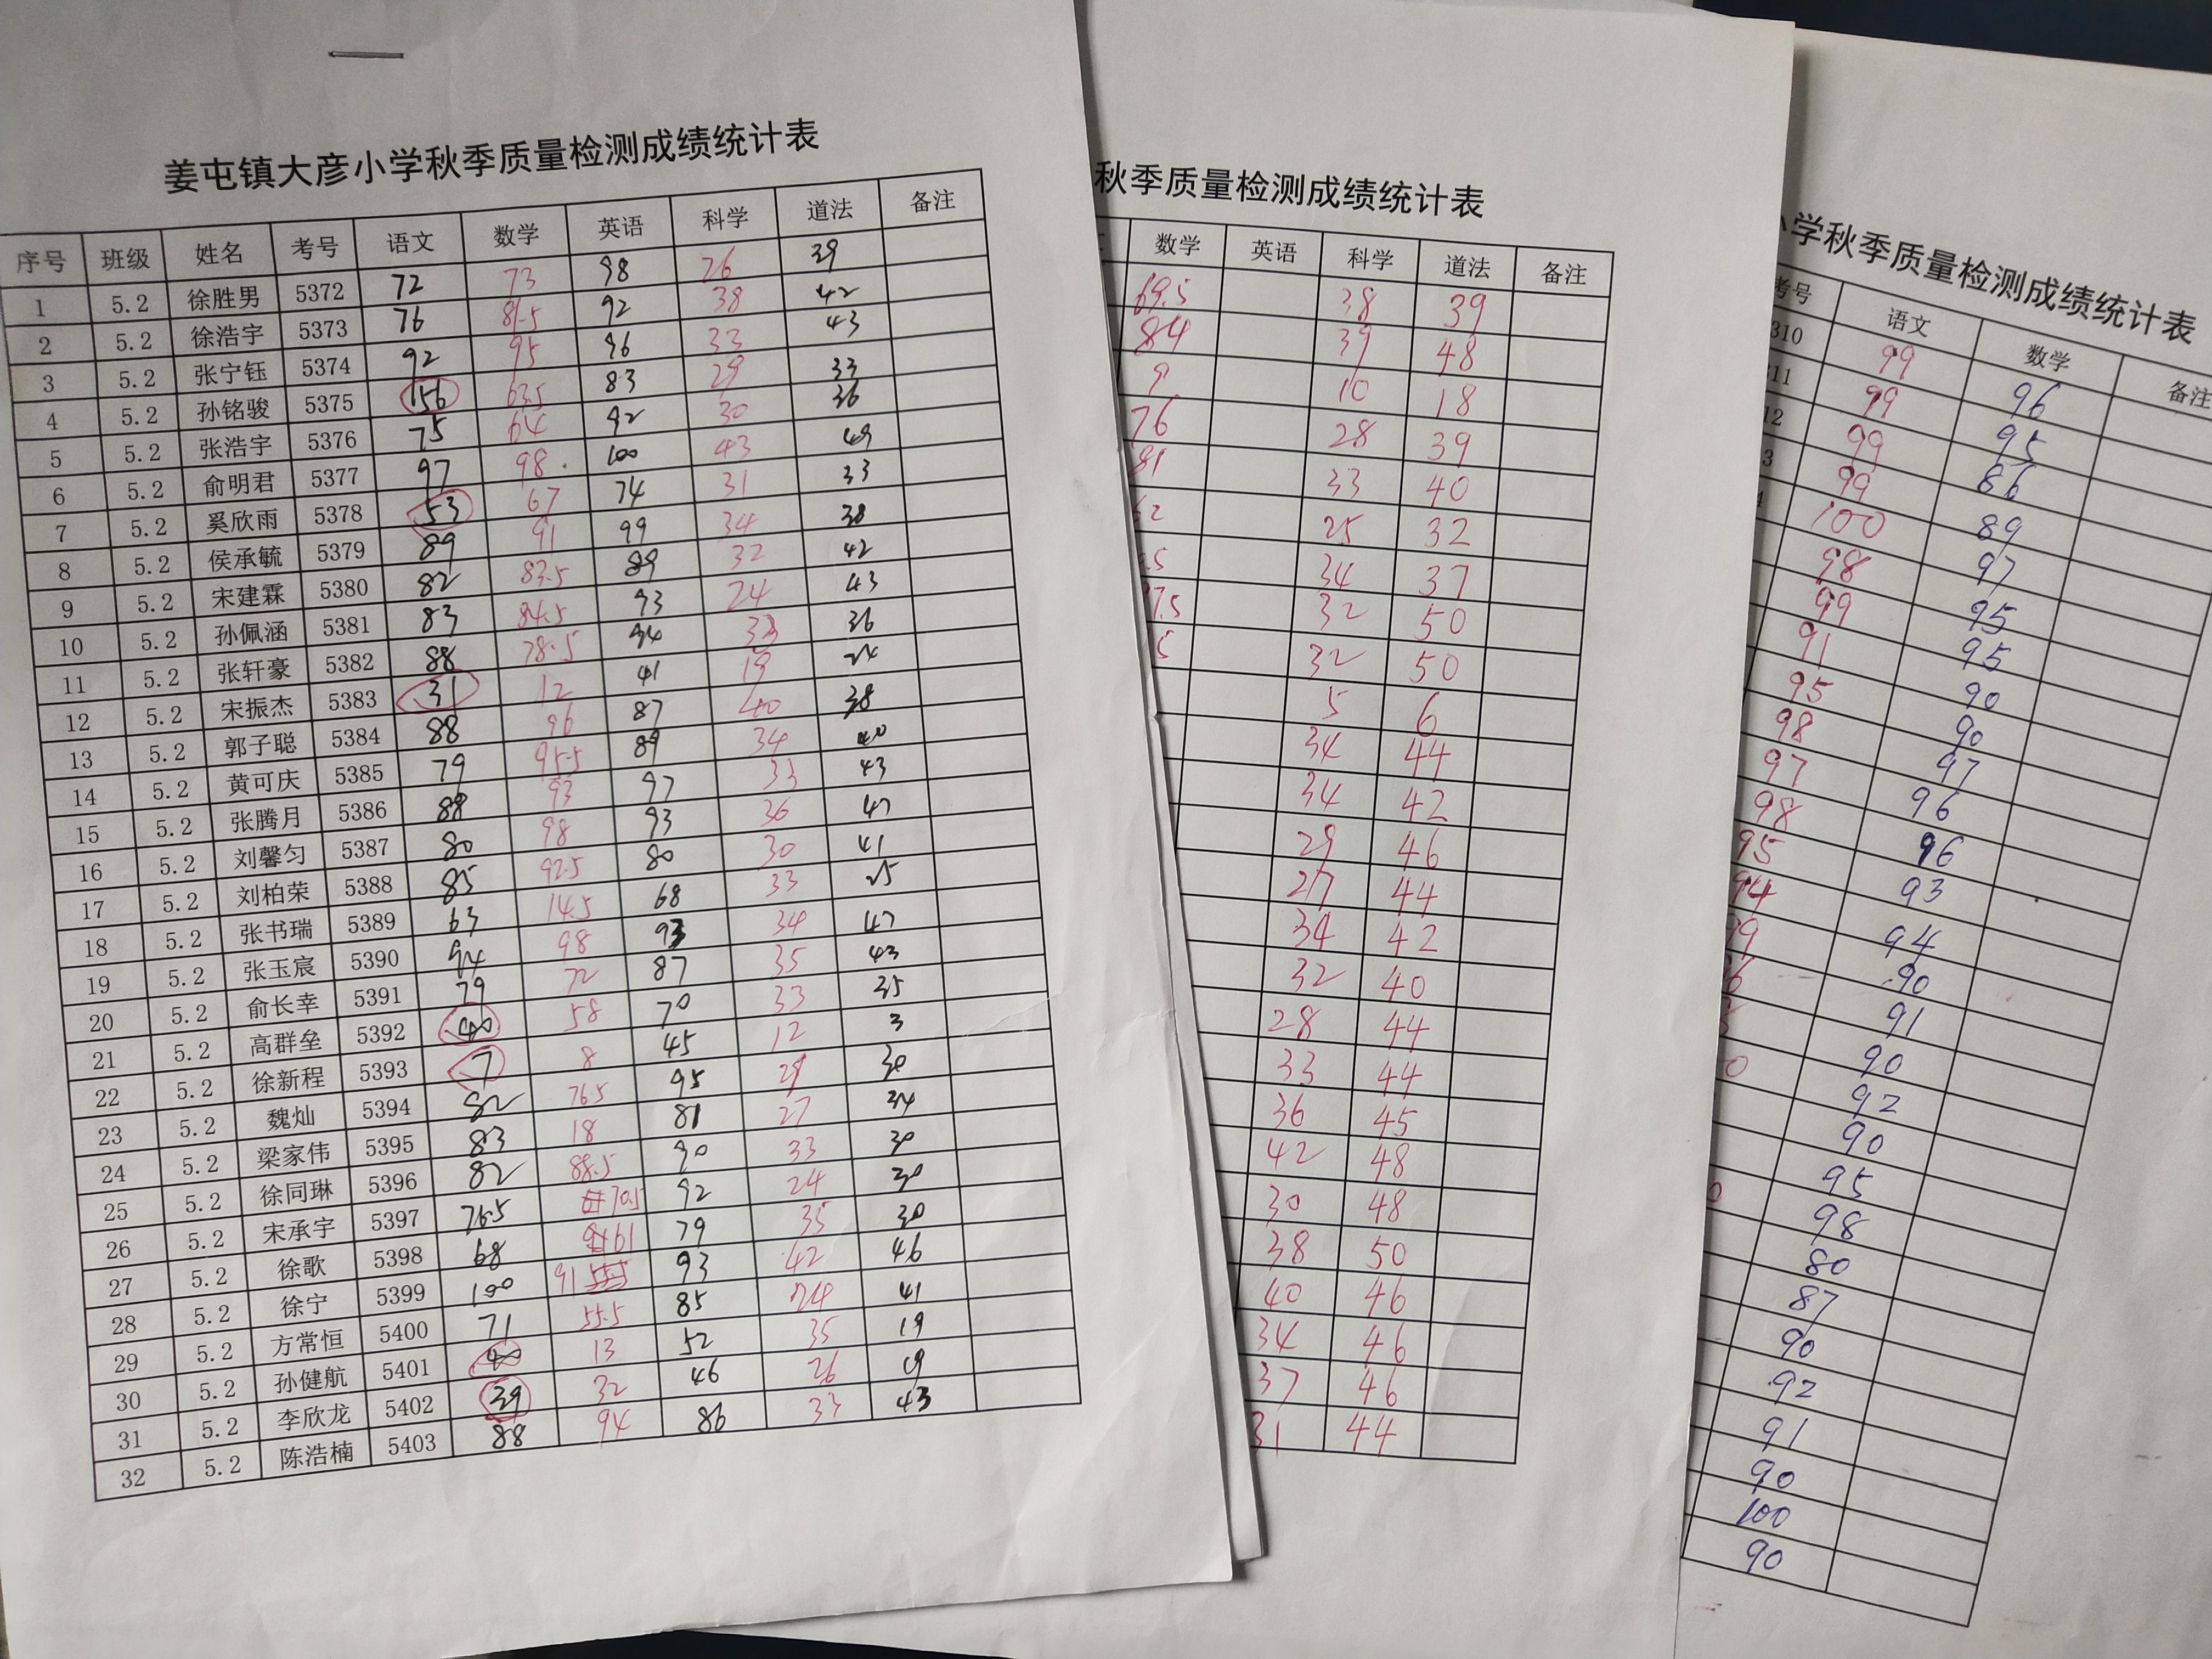 姜屯镇大彦小学秋季质量检测成绩统计表
序号 班级 姓名 考号 语文 数学 英语 科学 道法 备注
1 5.2 徐胜男 5372 72 73 98 26 39
2 5.2 徐浩宇 5373 76 81.5 92 38 42
3 5.2 张宁钰 5374 92 95 96 33 43
4 5.2 孙铭骏 5375 156 63.5 83 29 33
5 5.2 张浩宇 5376 75 64 92 30 36
6 5.2 俞明君 5377 97 98 100 43 49
7 5.2 奚欣雨 5378 53 67 74 31 33
8 5.2 侯承毓 5379 89 91 99 34 38
9 5.2 宋建霖 5380 82 83.5 89 32 42
10 5.2 孙佩涵 5381 83 84.5 93 24 43
11 5.2 张轩豪 5382 88 78.5 94 33 36
12 5.2 宋振杰 5383 31 12 41 19 24
13 5.2 郭子聪 5384 88 96 87 40 38
14 5.2 黄可庆 5385 79 95.5 89 34 40
15 5.2 张腾月 5386 88 93 97 33 43
16 5.2 刘馨匀 5387 80 98 93 36 47
17 5.2 刘柏荣 5388 85 92.5 80 30 41
18 5.2 张书瑞 5389 63 14.5 68 33 25
19 5.2 张玉宸 5390 94 98 93 34 47
20 5.2 俞长幸 5391 79 72 87 35 43
21 5.2 高群垒 5392 40 58 70 33 35
22 5.2 徐新程 5393 7 8 45 12 3
23 5.2 魏灿 5394 82 76.5 95 29 30
24 5.2 梁家伟 5395 83 18 81 27 34
25 5.2 徐同琳 5396 82 88.5 90 33 30
26 5.2 宋承宇 5397 76.5 70.5 92 24 30
27 5.2 徐歌 5398 68 61 79 35 30
28 5.2 徐宁 5399 100 91 93 42 46
29 5.2 方常恒 5400 71 55.5 85 24 41
30 5.2 孙健航 5401 40 13 52 35 19
31 5.2 李欣龙 5402 39 32 46 26 19
32 5.2 陈浩楠 5403 88 94 86 33 43
秋季质量检测成绩统计表
数学 英语 科学 道法 备注
69.5 38 39
84 39 48
9 10 18
76 28 39
81 33 40
62 25 32
34 37
32 50
32 50
5 6
34 44
34 42
29 46
27 44
34 42
32 40
28 44
33 44
36 45
42 48
30 48
38 50
40 46
34 46
37 46
31 44
小学秋季质量检测成绩统计表
考号 语文 数学 备注
310 99 96
311 99 95
12 99 86
3 99 89
100 97
98 95
99 95
91 90
95 90
98 97
97 96
98 96
95 93
94 94
90
91
90
92
90
95
98
80
87
90
92
91
90
100
90